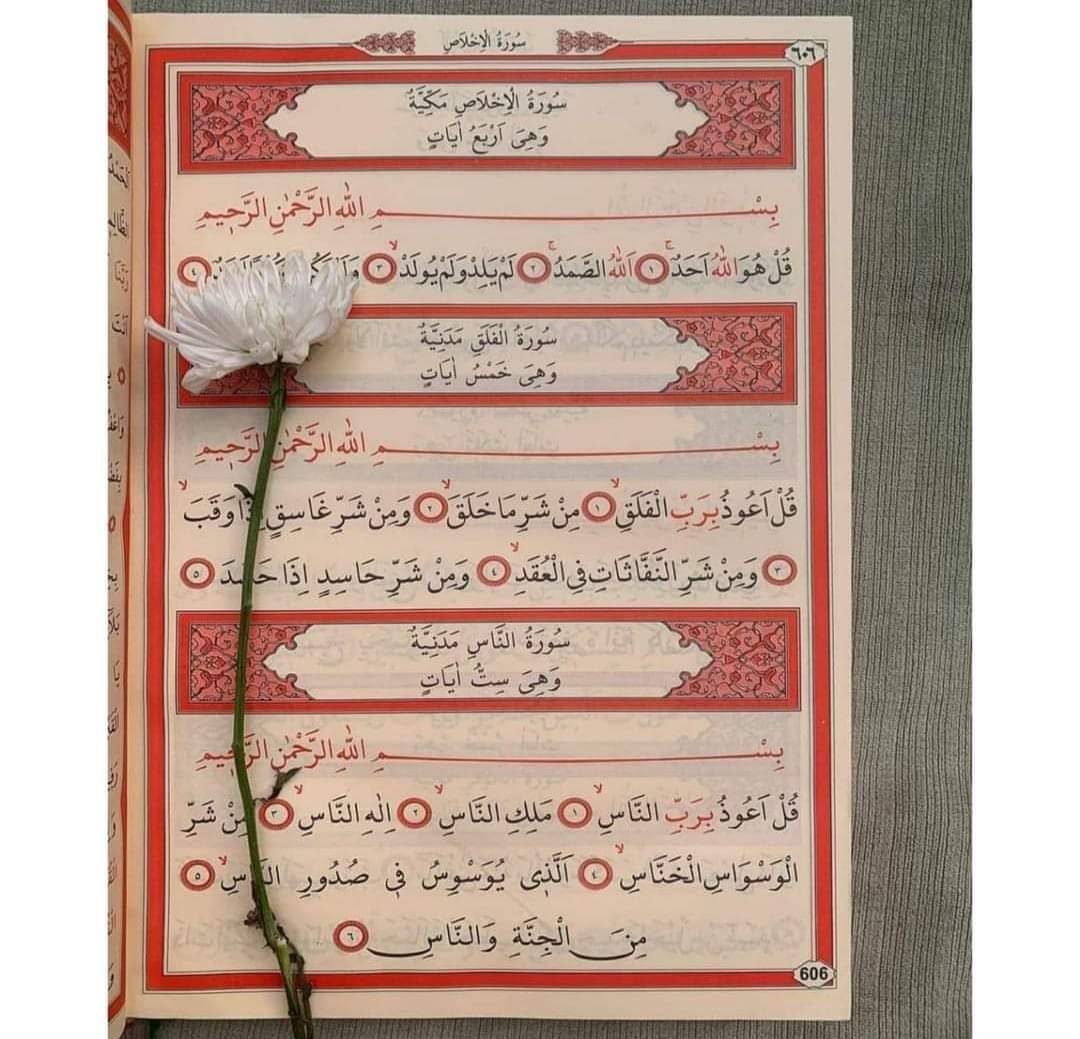 سُورَةُ الْاِخْلَاصِ
٦٠٦
سُورَةُ الْاِخْلَاصِ مَكِّيَّةٌ
وَهِىَ اَرْبَعُ اٰيَاتٍ
بِسْمِ اللّٰهِ الرَّحْمٰنِ الرَّحٖيمِ
قُلْ هُوَ اللّٰهُ اَحَدٌ ١ اَللّٰهُ الصَّمَدُ ٢ لَمْ يَلِدْ وَلَمْ يُولَدْ ٣ ٤
سُورَةُ الْفَلَقِ مَدَنِيَّةٌ
وَهِىَ خَمْسُ اٰيَاتٍ
بِسْمِ اللّٰهِ الرَّحْمٰنِ الرَّحٖيمِ
قُلْ اَعُوذُ بِرَبِّ الْفَلَقِ ١ مِنْ شَرِّ مَا خَلَقَ ٢ وَمِنْ شَرِّ غَاسِقٍ اِذَا وَقَبَ
٣ وَمِنْ شَرِّ النَّفَّاثَاتِ فِى الْعُقَدِ ٤ وَمِنْ شَرِّ حَاسِدٍ اِذَا حَسَدَ ٥
سُورَةُ النَّاسِ مَدَنِيَّةٌ
وَهِىَ سِتُّ اٰيَاتٍ
بِسْمِ اللّٰهِ الرَّحْمٰنِ الرَّحٖيمِ
قُلْ اَعُوذُ بِرَبِّ النَّاسِ ١ مَلِكِ النَّاسِ ٢ اِلٰهِ النَّاسِ ٣ مِنْ شَرِّ
الْوَسْوَاسِ الْخَنَّاسِ ٤ اَلَّذٖى يُوَسْوِسُ فٖى صُدُورِ النَّاسِ ٥
مِنَ الْجِنَّةِ وَالنَّاسِ ٦
606